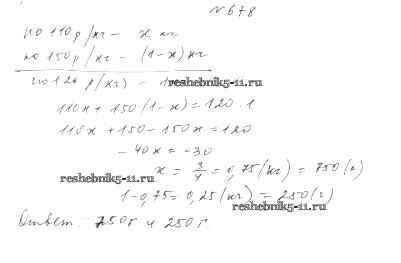 №678
по 110 р/кг – x кг
по 150 р/кг – (1-x) кг
по 120 р/кг) – 1 reshebnik5-11.ru
110x + 150(1-x) = 120 · 1
110x + 150 - 150x = 120
- 40x = -30
x = 3/4 = 0,75 (кг) = 750 (г)
reshebnik5-11.ru
1-0,75 = 0,25 (кг) = 250 (г)
reshebnik5-11.ru
Ответ. 750г и 250г.